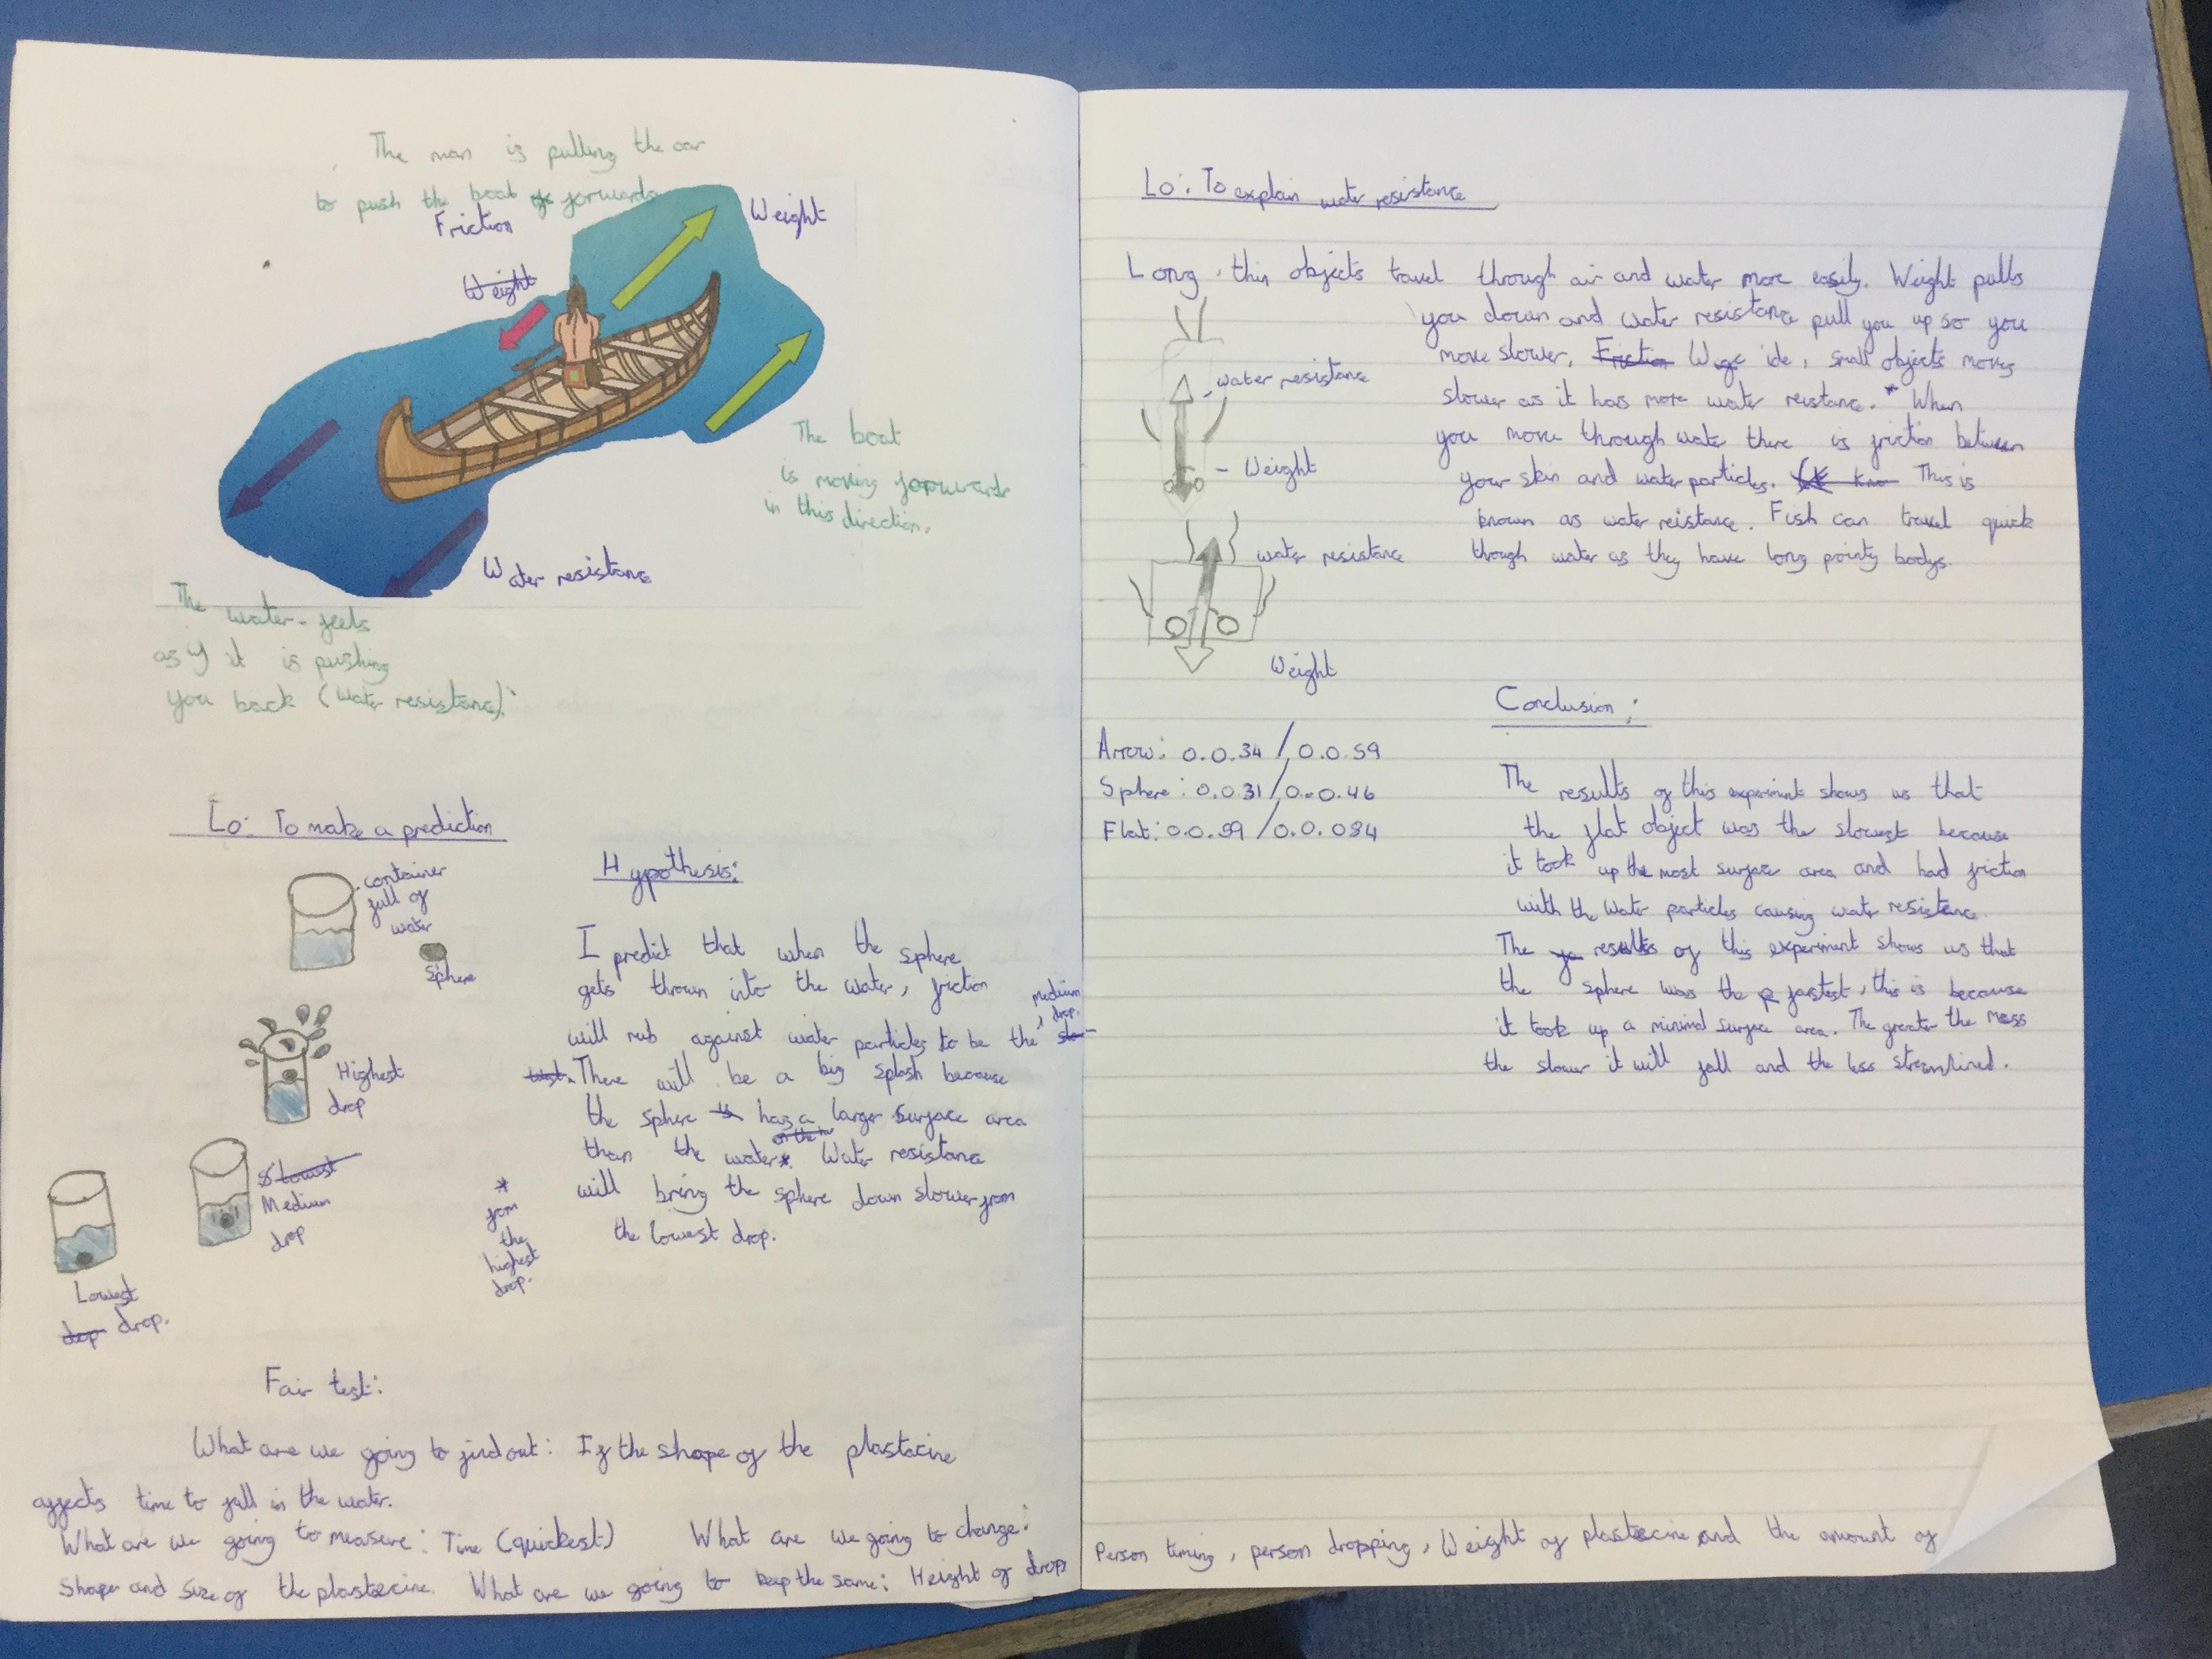 The man is pulling the oar
to push the boat forwards
Friction
Weight
Weight
The boat
is moving forwards
in this direction.
Water resistance
The water feels
as if it is pushing
you back (water resistance).
Lo: To make a prediction
container
full of
water
Sphere
Highest
drop
Slowest
Medium
drop
Lowest
drop drop.
Hypothesis:
I predict that when the sphere
gets thrown into the water, friction
medium
drop.
will rub against water particles to be the slow
There will be a big splash because
the sphere is has a larger surface area
than the water*. Water resistance
will bring the sphere down slower from
the lowest drop.
*
from
the
highest
drop.
Fair test:
What are we going to find out: If the shape of the plastecine
affects time to fall in the water.
What are we going to measure: Time (quickest) What are we going to change:
Shape and size of the plastecine. What are we going to keep the same: Height of drop,
Lo: To explain water resistance
Long, thin objects travel through air and water more easily. Weight pulls
you down and water resistance pull you up so you
move slower. Friction Wide, small objects moves
slower as it has more water reistance.* When
you move through water there is friction between
your skin and water particles. This is
known as water reistance. Fish can travel quick
though water as they have long pointy bodys.
water resistance
Weight
water resistance
Weight
Arrow: 0.0.34 / 0.0.59
Sphere: 0.0.31 / 0.0.46
Flat: 0.0.59 / 0.0.084
Conclusion:
The results of this experiment shows us that
the flat object was the slowest because
it took up the most surface area and had friction
with the water particles causing water resistance.
The results of this experiment shows us that
the sphere was the fastest, this is because
it took up a minimal surface area. The greater the mass
the slower it will fall and the less streamlined.
Person timing, person dropping, Weight of plastecine and the amount of